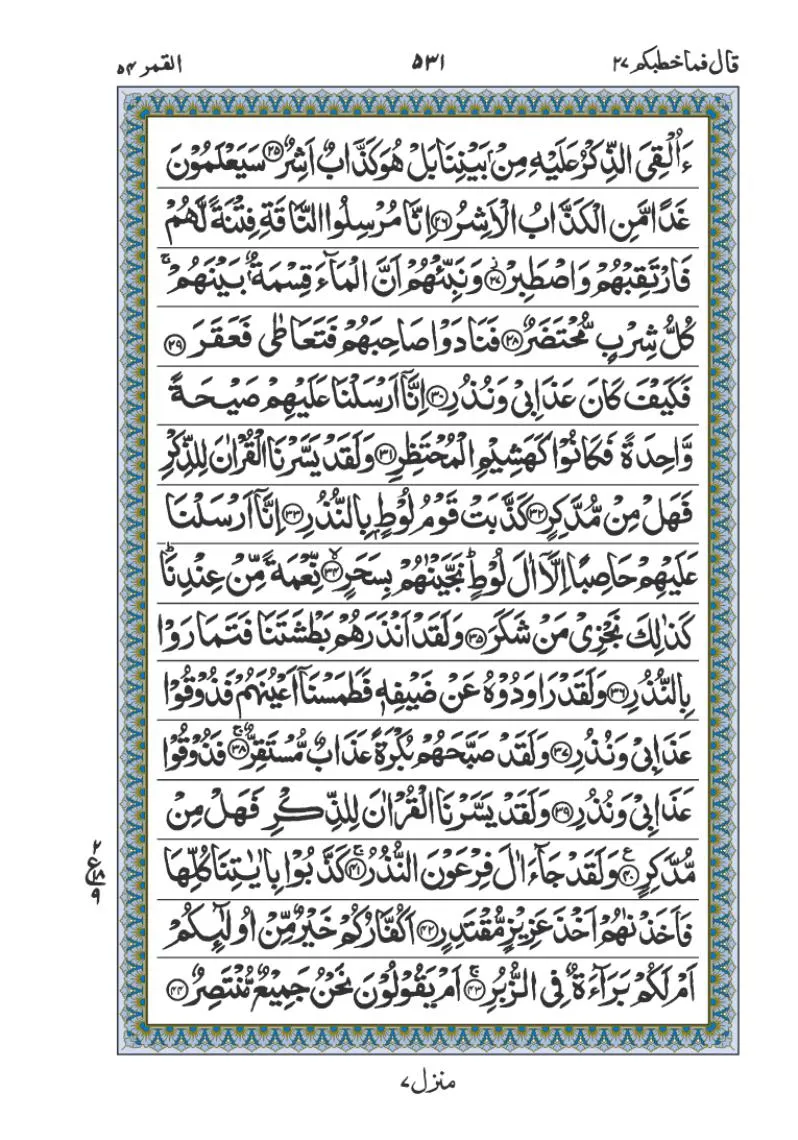 قال فما خطبکم ۲۷ ۵۳۱ القمر ۵۴
ءَاُلْقِیَ الذِّكْرُ عَلَیْهِ مِنْۢ بَیْنِنَا بَلْ هُوَ كَذَّابٌ اَشِرٌ ۟۲۵ سَیَعْلَمُوْنَ
غَدًا مَّنِ الْكَذَّابُ الْاَشِرُ ۟۲۶ اِنَّا مُرْسِلُوا النَّاقَةِ فِتْنَةً لَّهُمْ
فَارْتَقِبْهُمْ وَاصْطَبِرْ ۟ؗ۲۷ وَنَبِّئْهُمْ اَنَّ الْمَآءَ قِسْمَةٌۢ بَیْنَهُمْ ۚ
كُلُّ شِرْبٍ مُّحْتَضَرٌ ۟۲۸ فَنَادَوْا صَاحِبَهُمْ فَتَعَاطٰی فَعَقَرَ ۟۲۹
فَكَیْفَ كَانَ عَذَابِیْ وَنُذُرِ ۟۳۰ اِنَّاۤ اَرْسَلْنَا عَلَیْهِمْ صَیْحَةً
وَّاحِدَةً فَكَانُوْا كَهَشِیْمِ الْمُحْتَظِرِ ۟۳۱ وَلَقَدْ یَسَّرْنَا الْقُرْاٰنَ لِلذِّكْرِ
فَهَلْ مِنْ مُّدَّكِرٍ ۟۳۲ كَذَّبَتْ قَوْمُ لُوْطٍۭ بِالنُّذُرِ ۟۳۳ اِنَّاۤ اَرْسَلْنَا
عَلَیْهِمْ حَاصِبًا اِلَّاۤ اٰلَ لُوْطٍ ؕ نَجَّیْنٰهُمْ بِسَحَرٍ ۟ۙ۳۴ نِّعْمَةً مِّنْ عِنْدِنَا ؕ
كَذٰلِكَ نَجْزِیْ مَنْ شَكَرَ ۟۳۵ وَلَقَدْ اَنْذَرَهُمْ بَطْشَتَنَا فَتَمَارَوْا
بِالنُّذُرِ ۟۳۶ وَلَقَدْ رَاوَدُوْهُ عَنْ ضَیْفِهٖ فَطَمَسْنَاۤ اَعْیُنَهُمْ فَذُوْقُوْا
عَذَابِیْ وَنُذُرِ ۟۳۷ وَلَقَدْ صَبَّحَهُمْ بُكْرَةً عَذَابٌ مُّسْتَقِرٌّ ۟ۚ۳۸ فَذُوْقُوْا
عَذَابِیْ وَنُذُرِ ۟۳۹ وَلَقَدْ یَسَّرْنَا الْقُرْاٰنَ لِلذِّكْرِ فَهَلْ مِنْ
مُّدَّكِرٍ ۟۠۴۰ وَلَقَدْ جَآءَ اٰلَ فِرْعَوْنَ النُّذُرُ ۟ۚ۴۱ كَذَّبُوْا بِاٰیٰتِنَا كُلِّهَا
۲ ع ۱۸ ۹
فَاَخَذْنٰهُمْ اَخْذَ عَزِیْزٍ مُّقْتَدِرٍ ۟۴۲ اَكُفَّارُكُمْ خَیْرٌ مِّنْ اُولٰٓىِٕكُمْ
اَمْ لَكُمْ بَرَآءَةٌ فِی الزُّبُرِ ۟ۚ۴۳ اَمْ یَقُوْلُوْنَ نَحْنُ جَمِیْعٌ مُّنْتَصِرٌ ۟۴۴
منزل ۷